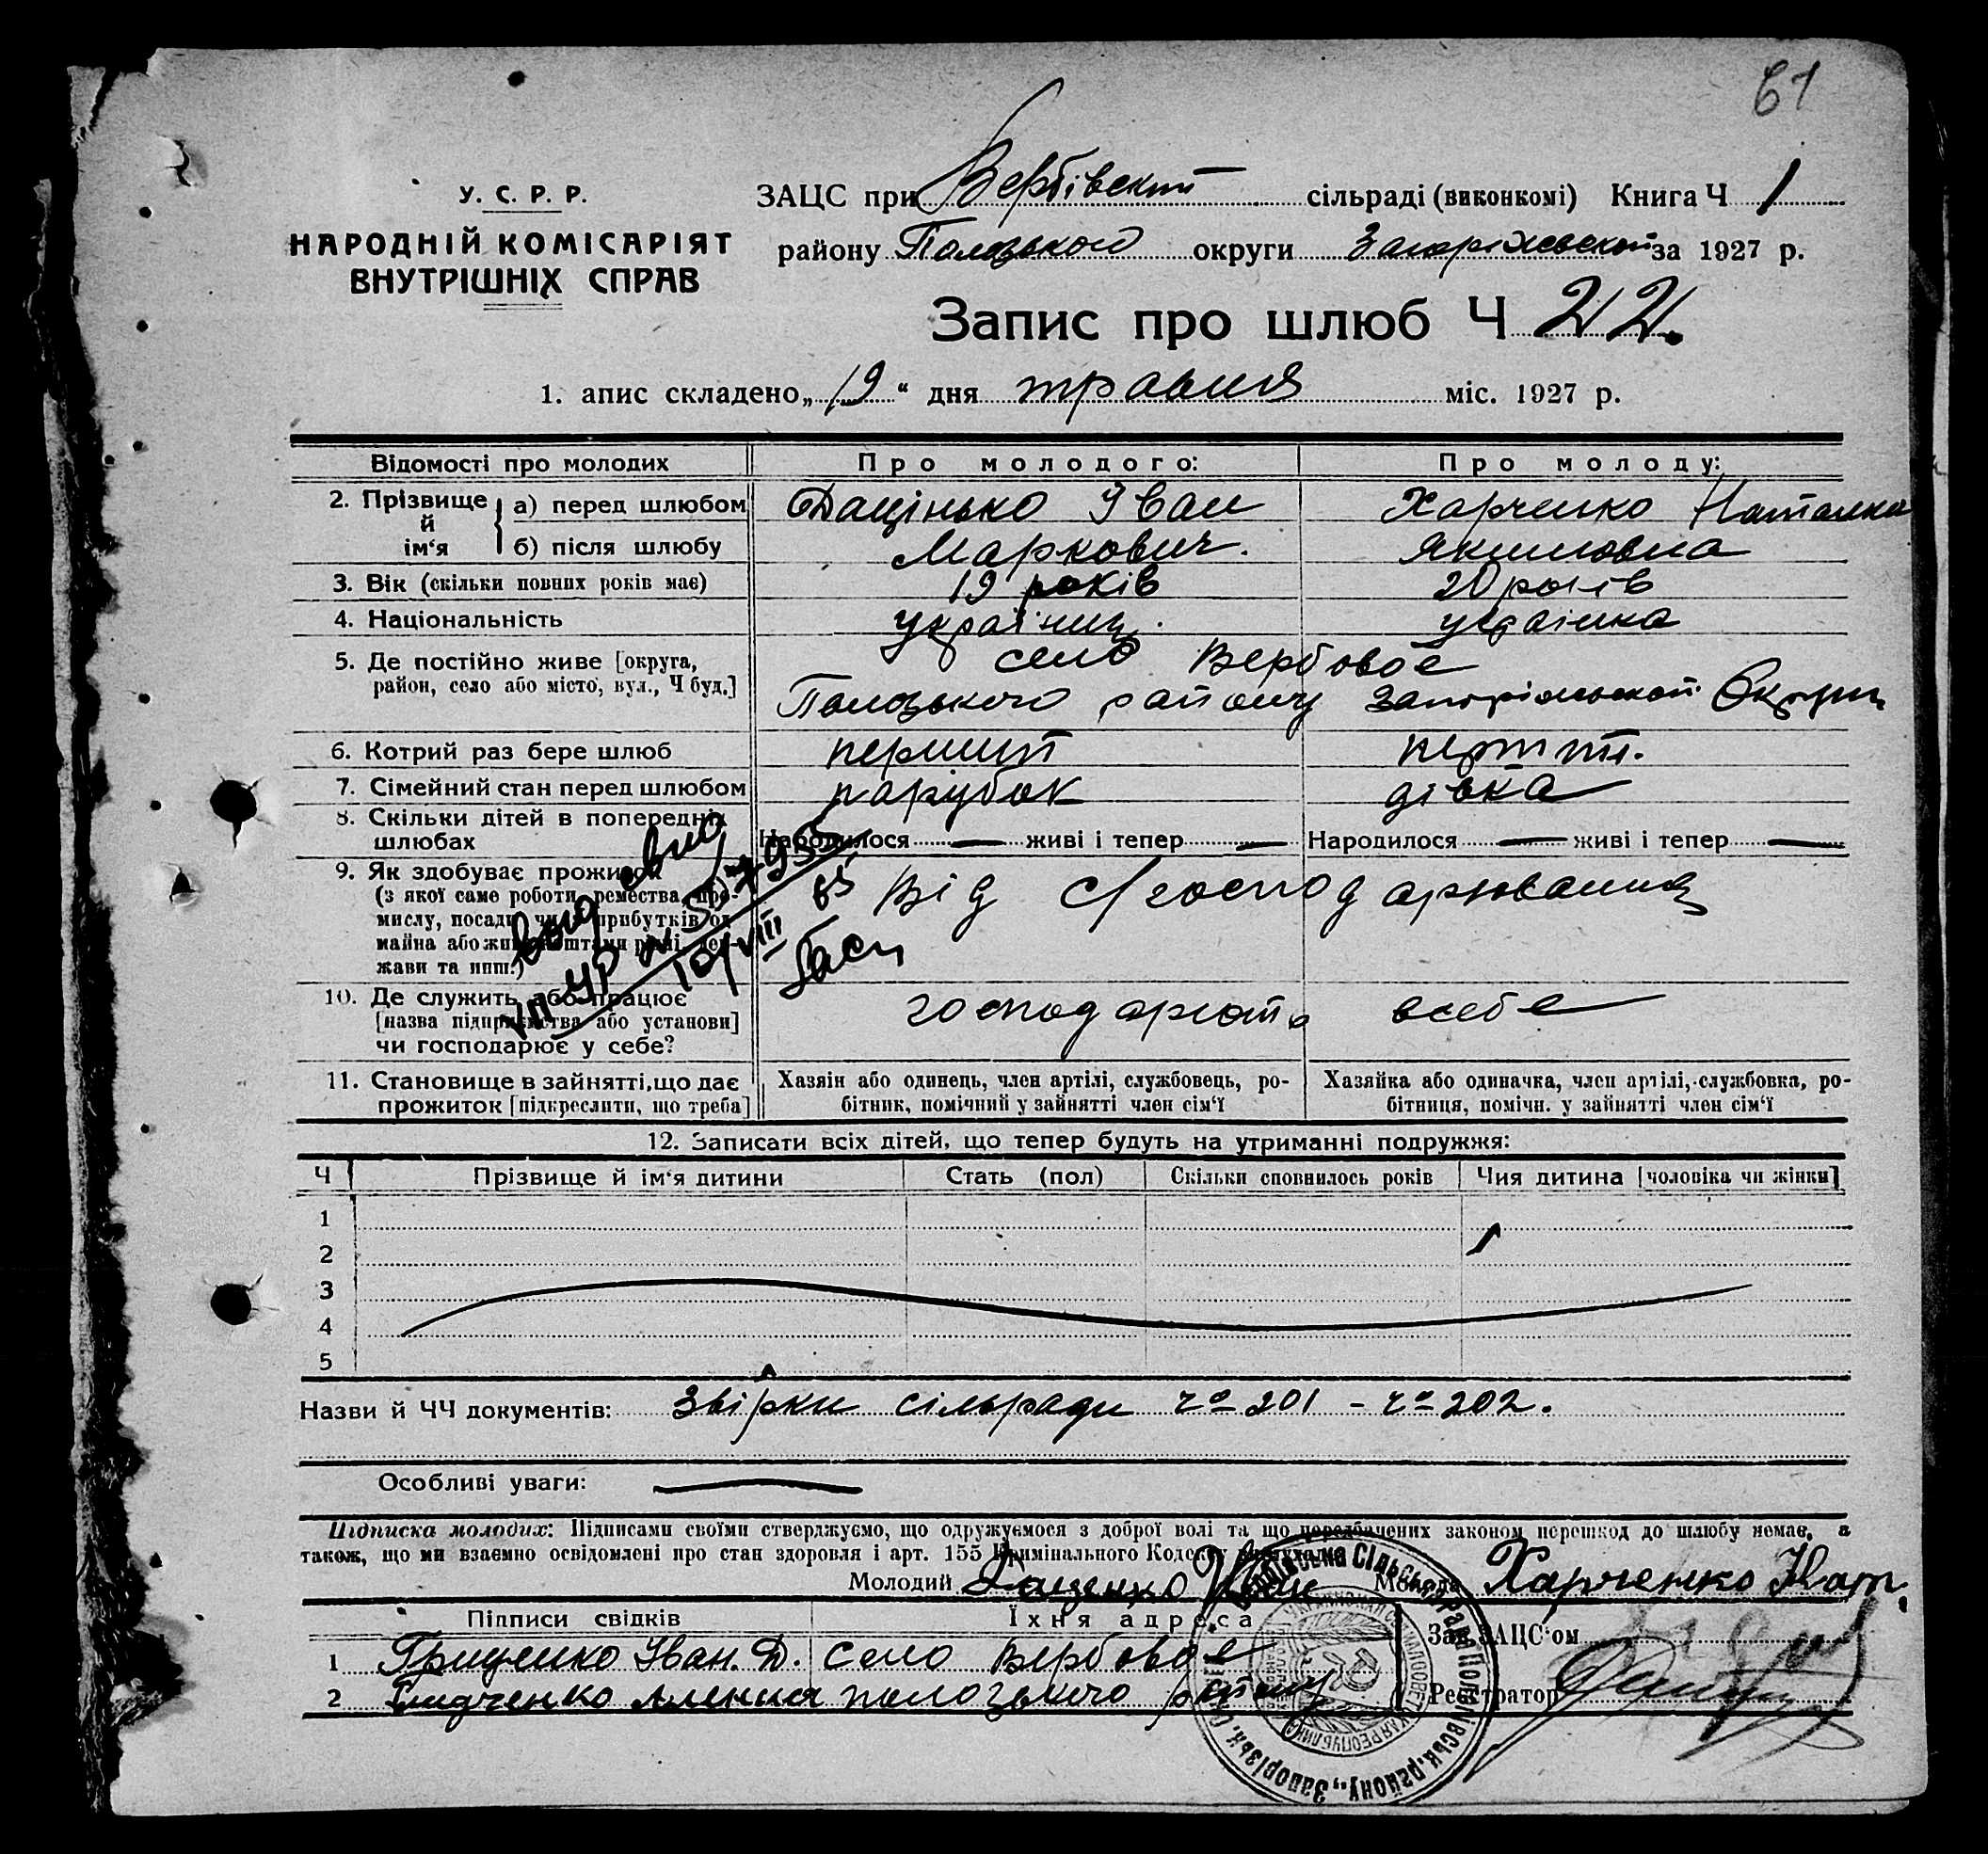 61
У. С. Р. Р.
НАРОДНІЙ КОМІСАРІЯТ
ВНУТРІШНІХ СПРАВ
ЗАЦС при Вербівский сільраді (виконкомі) Книга Ч 1
району Пологзького округи Запоріжської за 1927 р.
Запис про шлюб Ч 22.
1. апис складено „19“ дня травня міс. 1927 р.
Відомості про молодих Про молодого: Про молоду:
2. Прізвище й ім‘я
а) перед шлюбом Дацінько Іван Харченко Наталка
б) після шлюбу Маркович. Якимовна
3. Вік (скільки повних років має) 19 років 20 років
4. Національність українец. українка
5. Де постійно живе [округа, район, село або місто, вул., Ч буд.]
село Вербовое
району Запоріжської Округи
6. Котрий раз бере шлюб перший
7. Сімейний стан перед шлюбом парубок дівка
8. Скільки дітей в попередніх шлюбах Народилося — живі і тепер — Народилося — живі і тепер —
9. Як здобуває прожиток
(з якої саме роботи, ремества, про-
мислу, посади, чи з прибутків од
майна або
жави та инш.)
Від господарювання
10. Де служить або працює
[назва підприємства або установи]
чи господарює у себе?
господарюють всебе
11. Становище в зайнятті, що дає
прожиток [підкреслити, що треба]
Хазяїн або одинець, член артілі, службовець, ро-
бітник, помічний у зайнятті член сім‘ї
Хазяйка або одиначка, член артілі, службовка, ро-
бітниця, помічн. у зайнятті член сім‘ї
12. Записати всіх дітей, що тепер будуть на утриманні подружжя:
Ч Прізвище й ім‘я дитини Стать (пол) Скільки сповнилось років Чия дитина [чоловіка чи жінки]
1
2
3
4
5
Назви й ЧЧ документів: Звірки сільради 201 - 202.
Особливі уваги: —
Підписка молодих: Підписами своїми стверджуємо, що одружуємося з доброї волі та що передбачених законом перешкод до шлюбу немає, а
також, що ми взаємно освідомлені про стан здоровля і арт. 155 Кримінального Кодексу
Молодий Даценко Іван Молода Харченко Нат.
Підписи свідків Їхня адреса
Зав. ЗАЦС‘ом
1 Гриценко Іван. Д. село Вербовое
2 району
Реєстратор